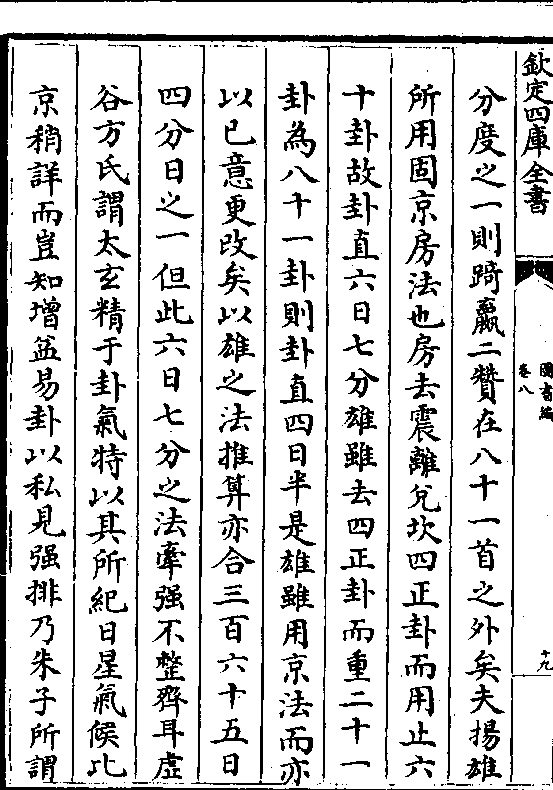 欽定四庫全書
圖書編
卷八
十九
分度之一則踦贏二贊在八十一首之外矣夫揚雄
所用固京房法也房去震離兌坎四正卦而用止六
十卦故卦直六日七分雄雖去四正卦而重二十一
卦為八十一卦則卦直四日半是雄雖用京法而亦
以已意更改矣以雄之法推算亦合三百六十五日
四分日之一但此六日七分之法牽强不整齊耳虛
谷方氏謂太玄精于卦氣特以其所紀日星氣候比
京稍詳而豈知增益易卦以私見强排乃朱子所謂